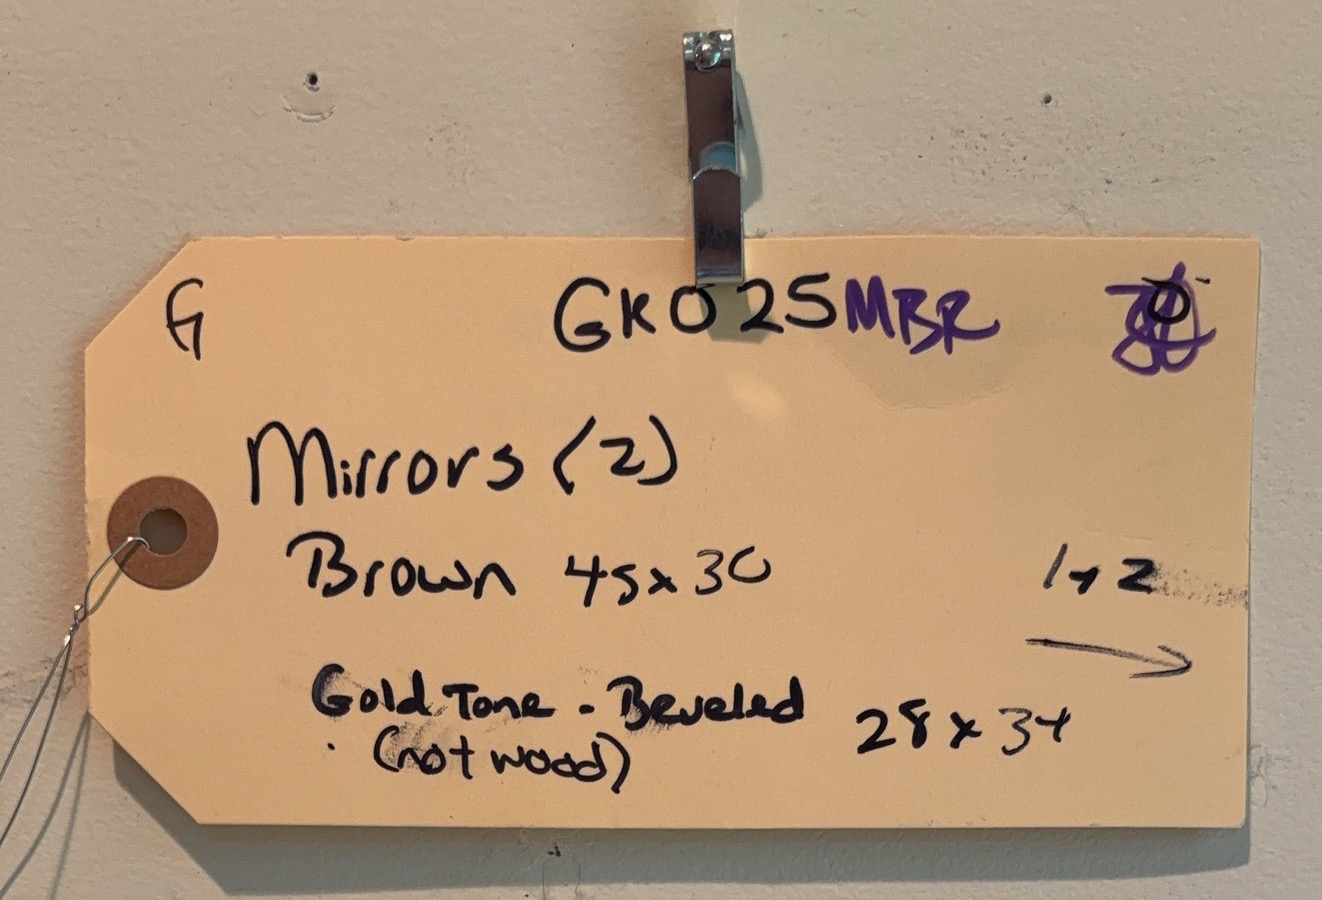 G GKO25MBR
Mirrors (2)
Brown 45x30 1 of 2
Gold Tone - Beveled 28 x 34
(not wood)